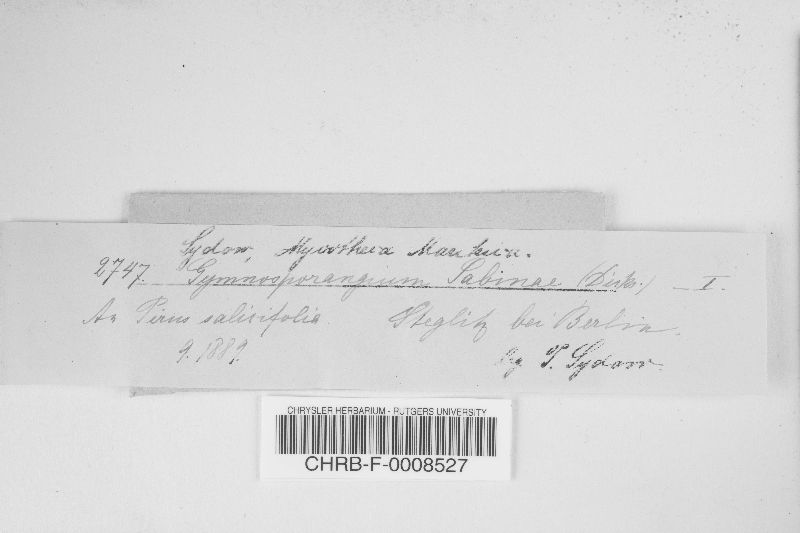 Sydow, Mycotheca Marchica.
2747. Gymnosporangium Sabinae (Dicks.) — I.
An Pirus salicifolia Steglitz bei Berlin.
9. 1889. leg. P. Sydow.
CHRYSLER HERBARIUM - RUTGERS UNIVERSITY
CHRB-F-0008527